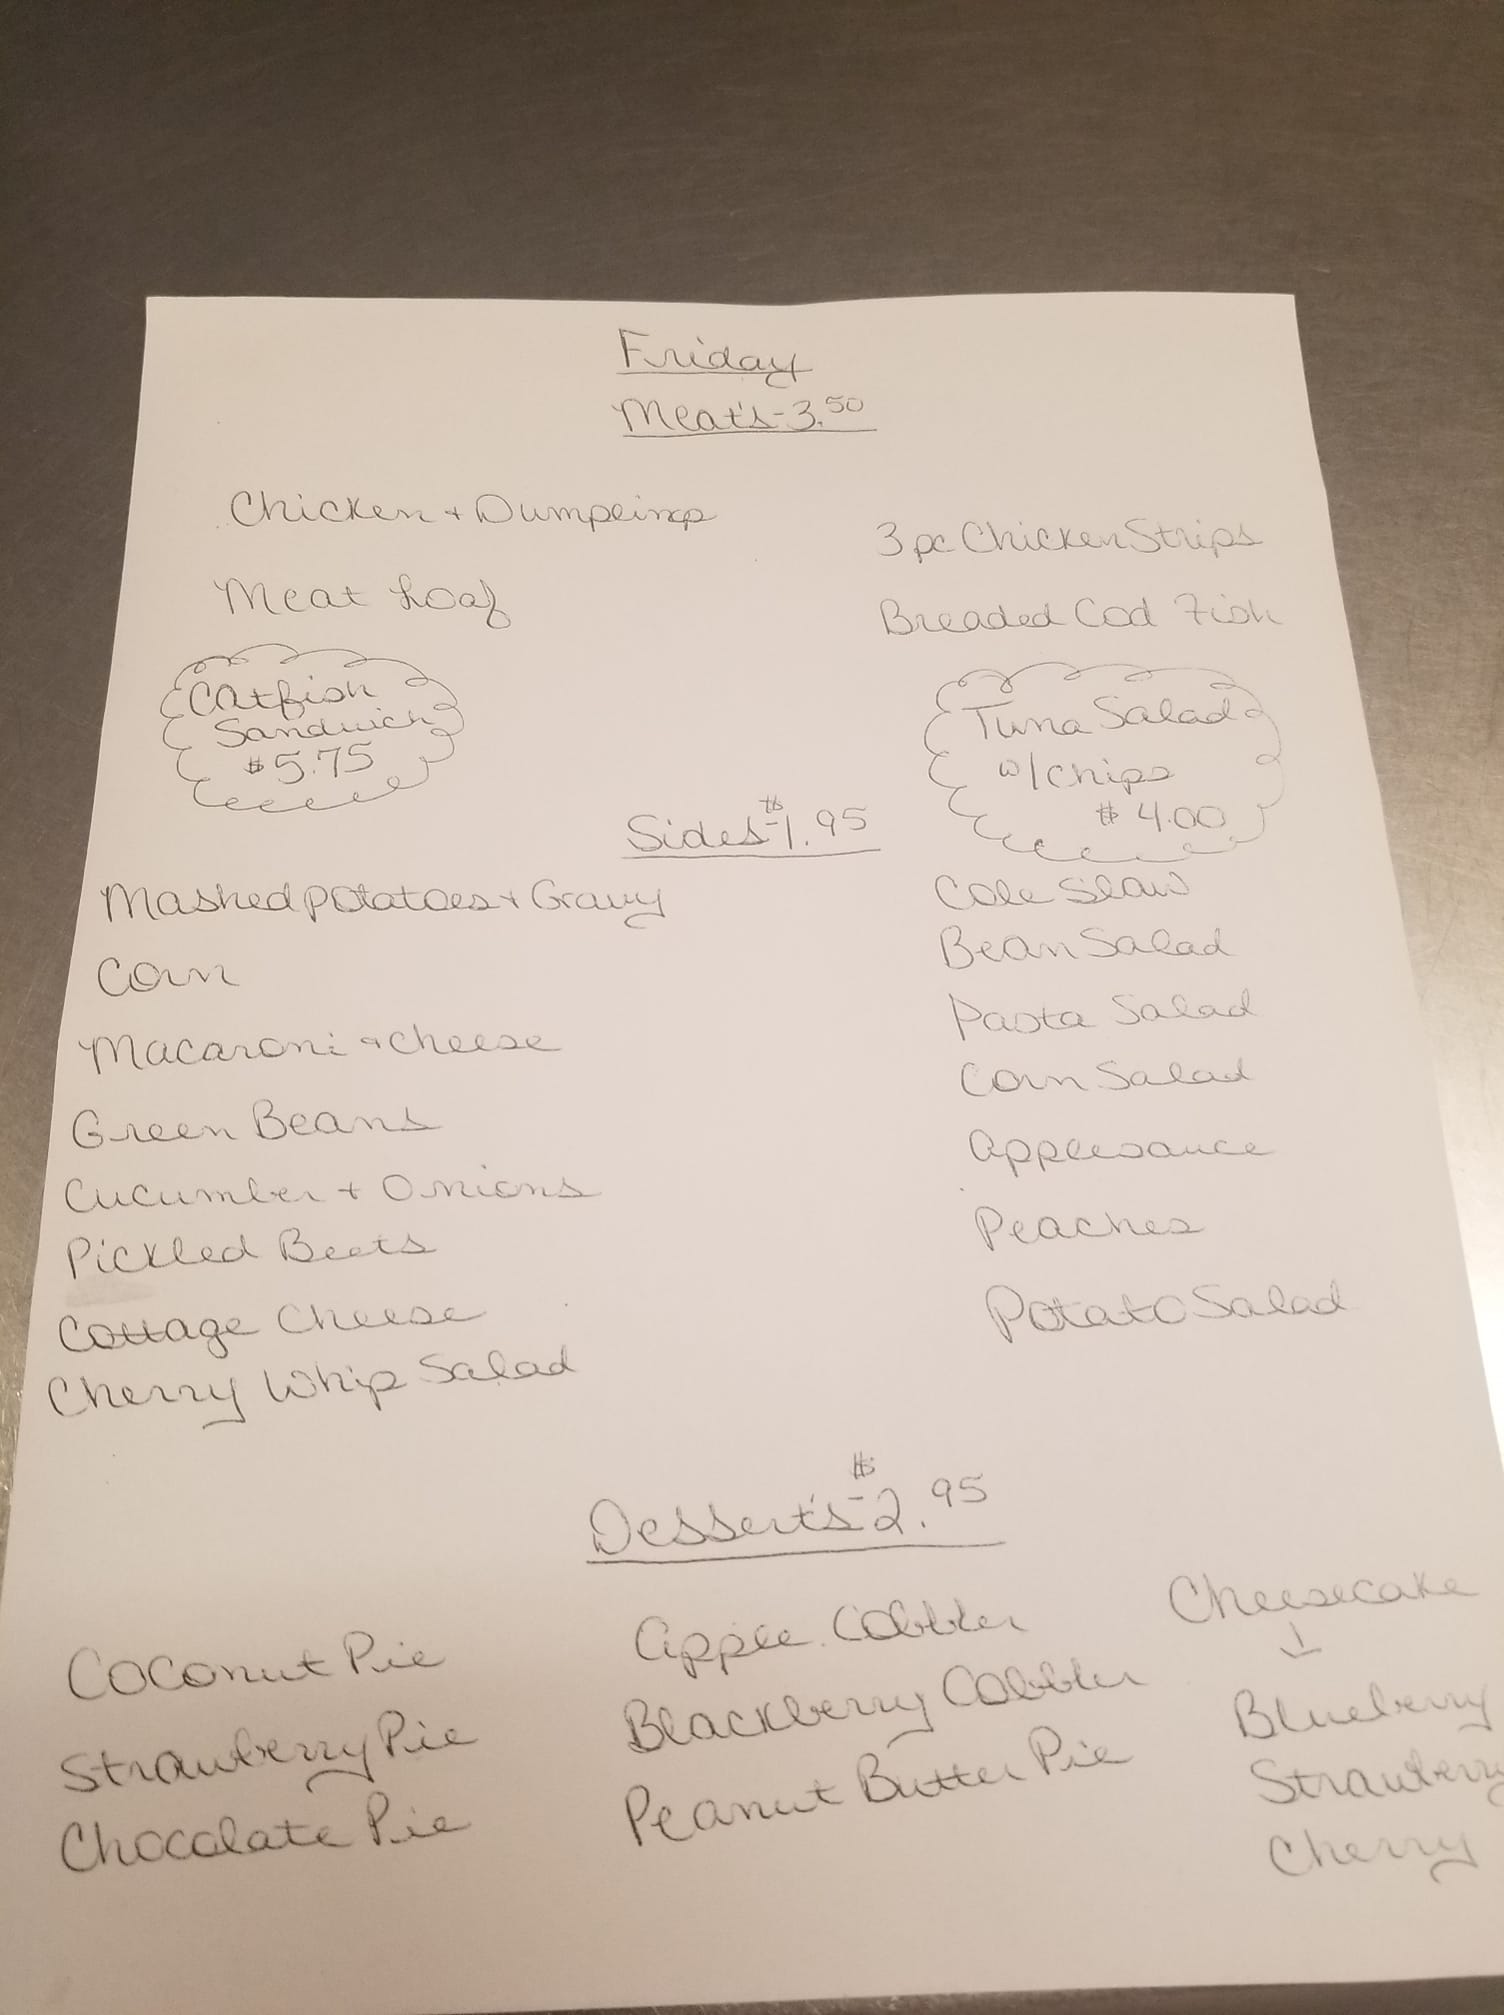 Friday
Meat's - 3.50
Chicken + Dumplings
Meat Loaf
3 pc Chicken Strips
Breaded Cod Fish
Catfish
Sandwich
$5.75
Tuna Salad
w/ chips
$ 4.00
Sides - $1.95
Mashed potatoes + Gravy
Corn
Macaroni + cheese
Green Beans
Cucumber + Onions
Pickled Beets
Cottage Cheese
Cherry Whip Salad
Cole Slaw
Bean Salad
Pasta Salad
Corn Salad
Applesauce
Peaches
Potato Salad
Dessert's - $2.95
Coconut Pie
Strawberry Pie
Chocolate Pie
Apple Cobbler
Blackberry Cobbler
Peanut Butter Pie
Cheesecake
↓
Blueberry
Strawberry
Cherry